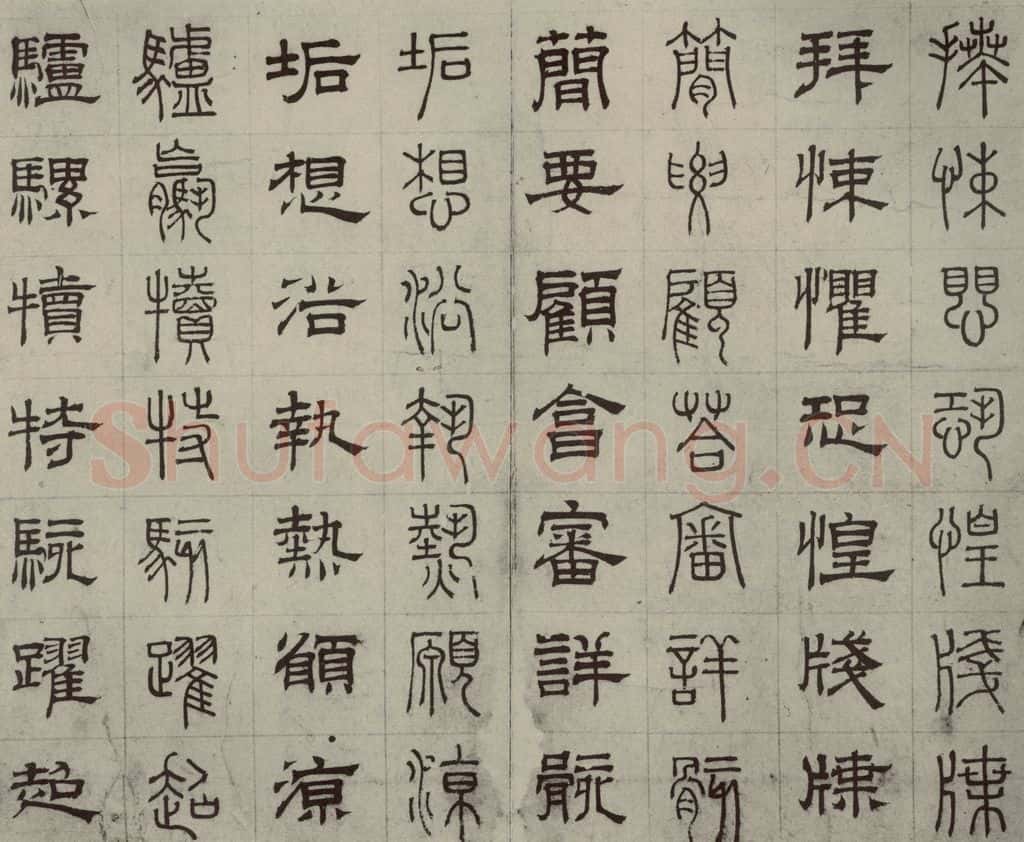 拜悚愳恐惶牋牒
拜悚懼恐惶牋牒
簡要顧荅審詳骸
簡要顧畣審詳骸
垢想浴執熱願涼
垢想浴執熱願涼
驢驘犢特駭躍超
驢騾犢特駭躍超
Shufawang.CN